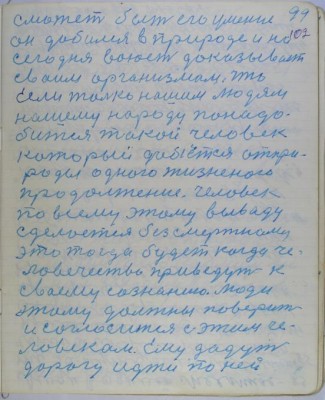 сможет быт его умение 99
он добился в природе и на 107
сегодня воюет доказывает
своим организмам. что
если толко нашим людям
нашему народу понадо-
бится такой человек
который добється от при-
роды одного жизненого
продолжение. человек
по всему этому выводу
сделоется безсмертному
это тогда будет когда че-
ловечество приведут к
своему сознанию. люди
этому должны поверит
и согласится с этим че-
ловекам. Ему дадут
дорогу идти по ней